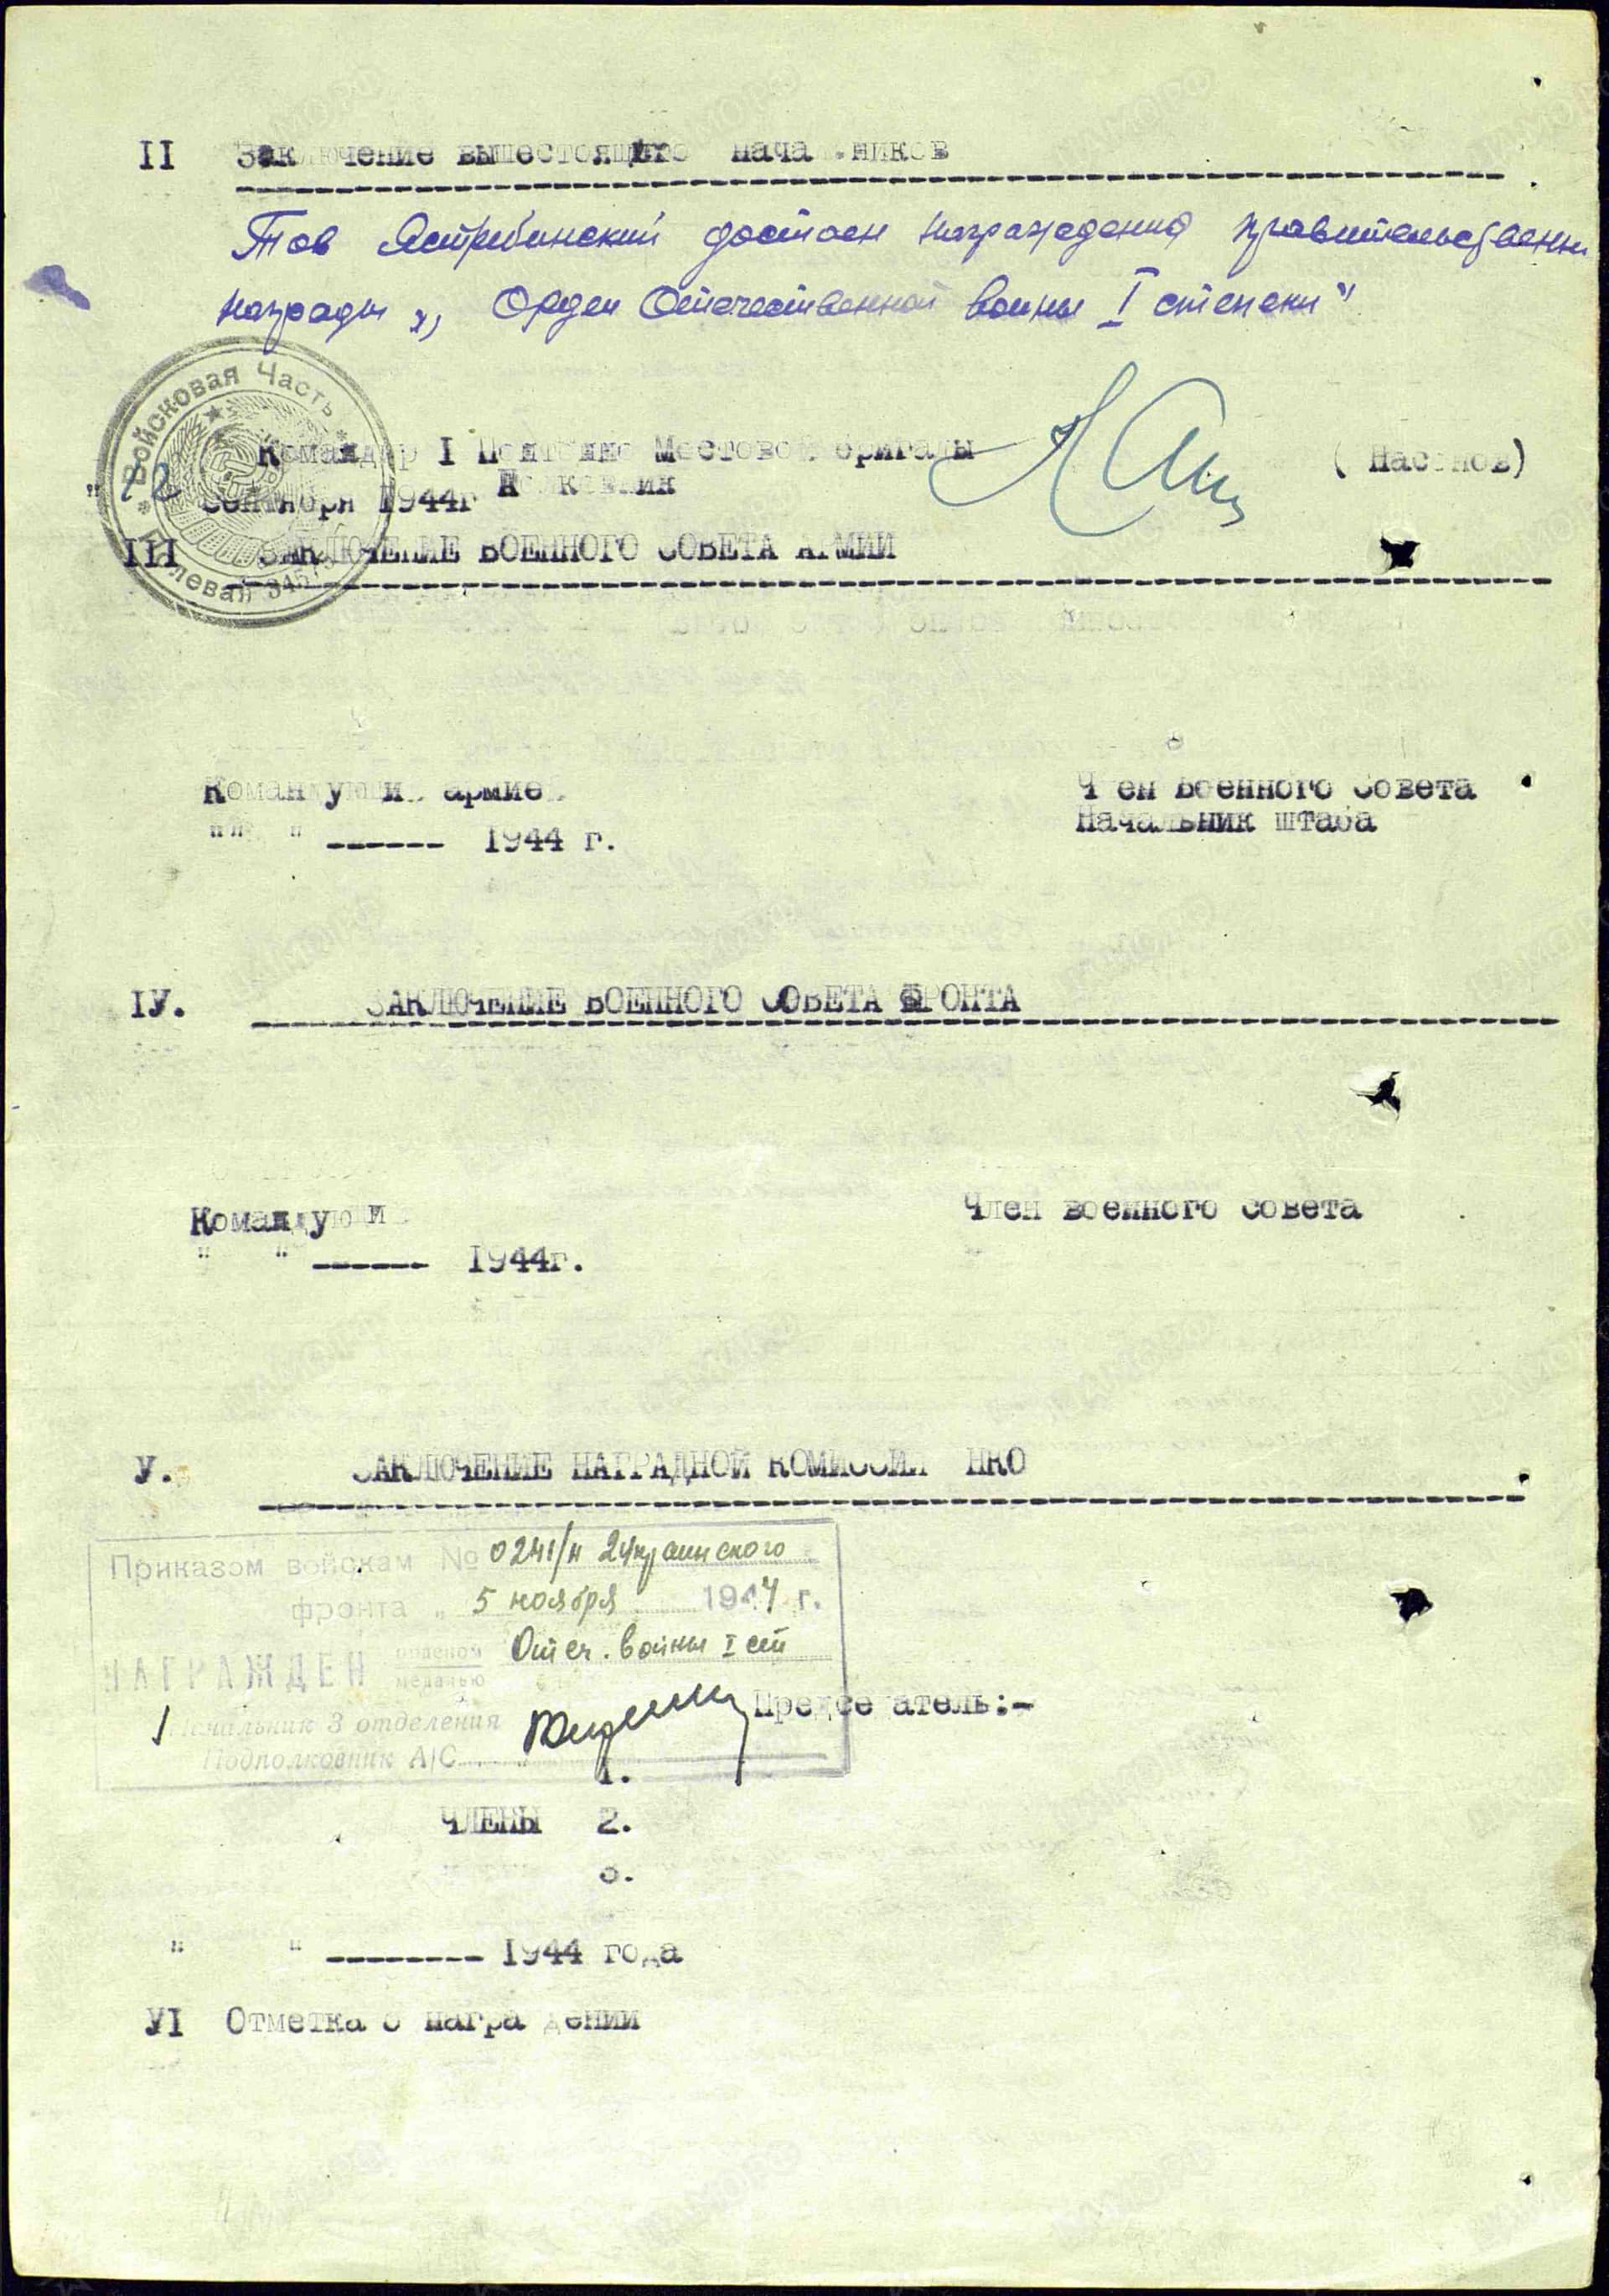 II Заключение вышестоящего начальников
Тов Ястребинский достоен награждения правительственн
награды „ Орден Отечественной воины I степени"
Войсковая Часть
Полевая
Командир I Понтонно Мостовой бригады
Полковник
(Насонов)
"12" сентября 1944г
III ЗАКЛЮЧЕНИЕ ВОЕННОГО СОВЕТА АРМИИ
Командующий армией
Член Военного Совета
Начальник штаба
" " ------ 1944 г.
IУ. ЗАКЛЮЧЕНИЕ ВОЕННОГО СОВЕТА ФРОНТА
Командующий
Член военного совета
" " ------ 1944г.
У. ЗАКЛЮЧЕНИЕ НАГРАДНОЙ КОМИССИИ НКО
Приказом войскам № 0241/н 2 Украинского
фронта „ 5 ноября 1944 г.
НАГРАЖДЕН орденом медалью Отеч. войны I ст
Начальник 3 отделения
Подполковник А/С
Председатель:-
1.
ЧЛЕНЫ 2.
3.
" " -------- 1944 года
УI Отметка о награждении